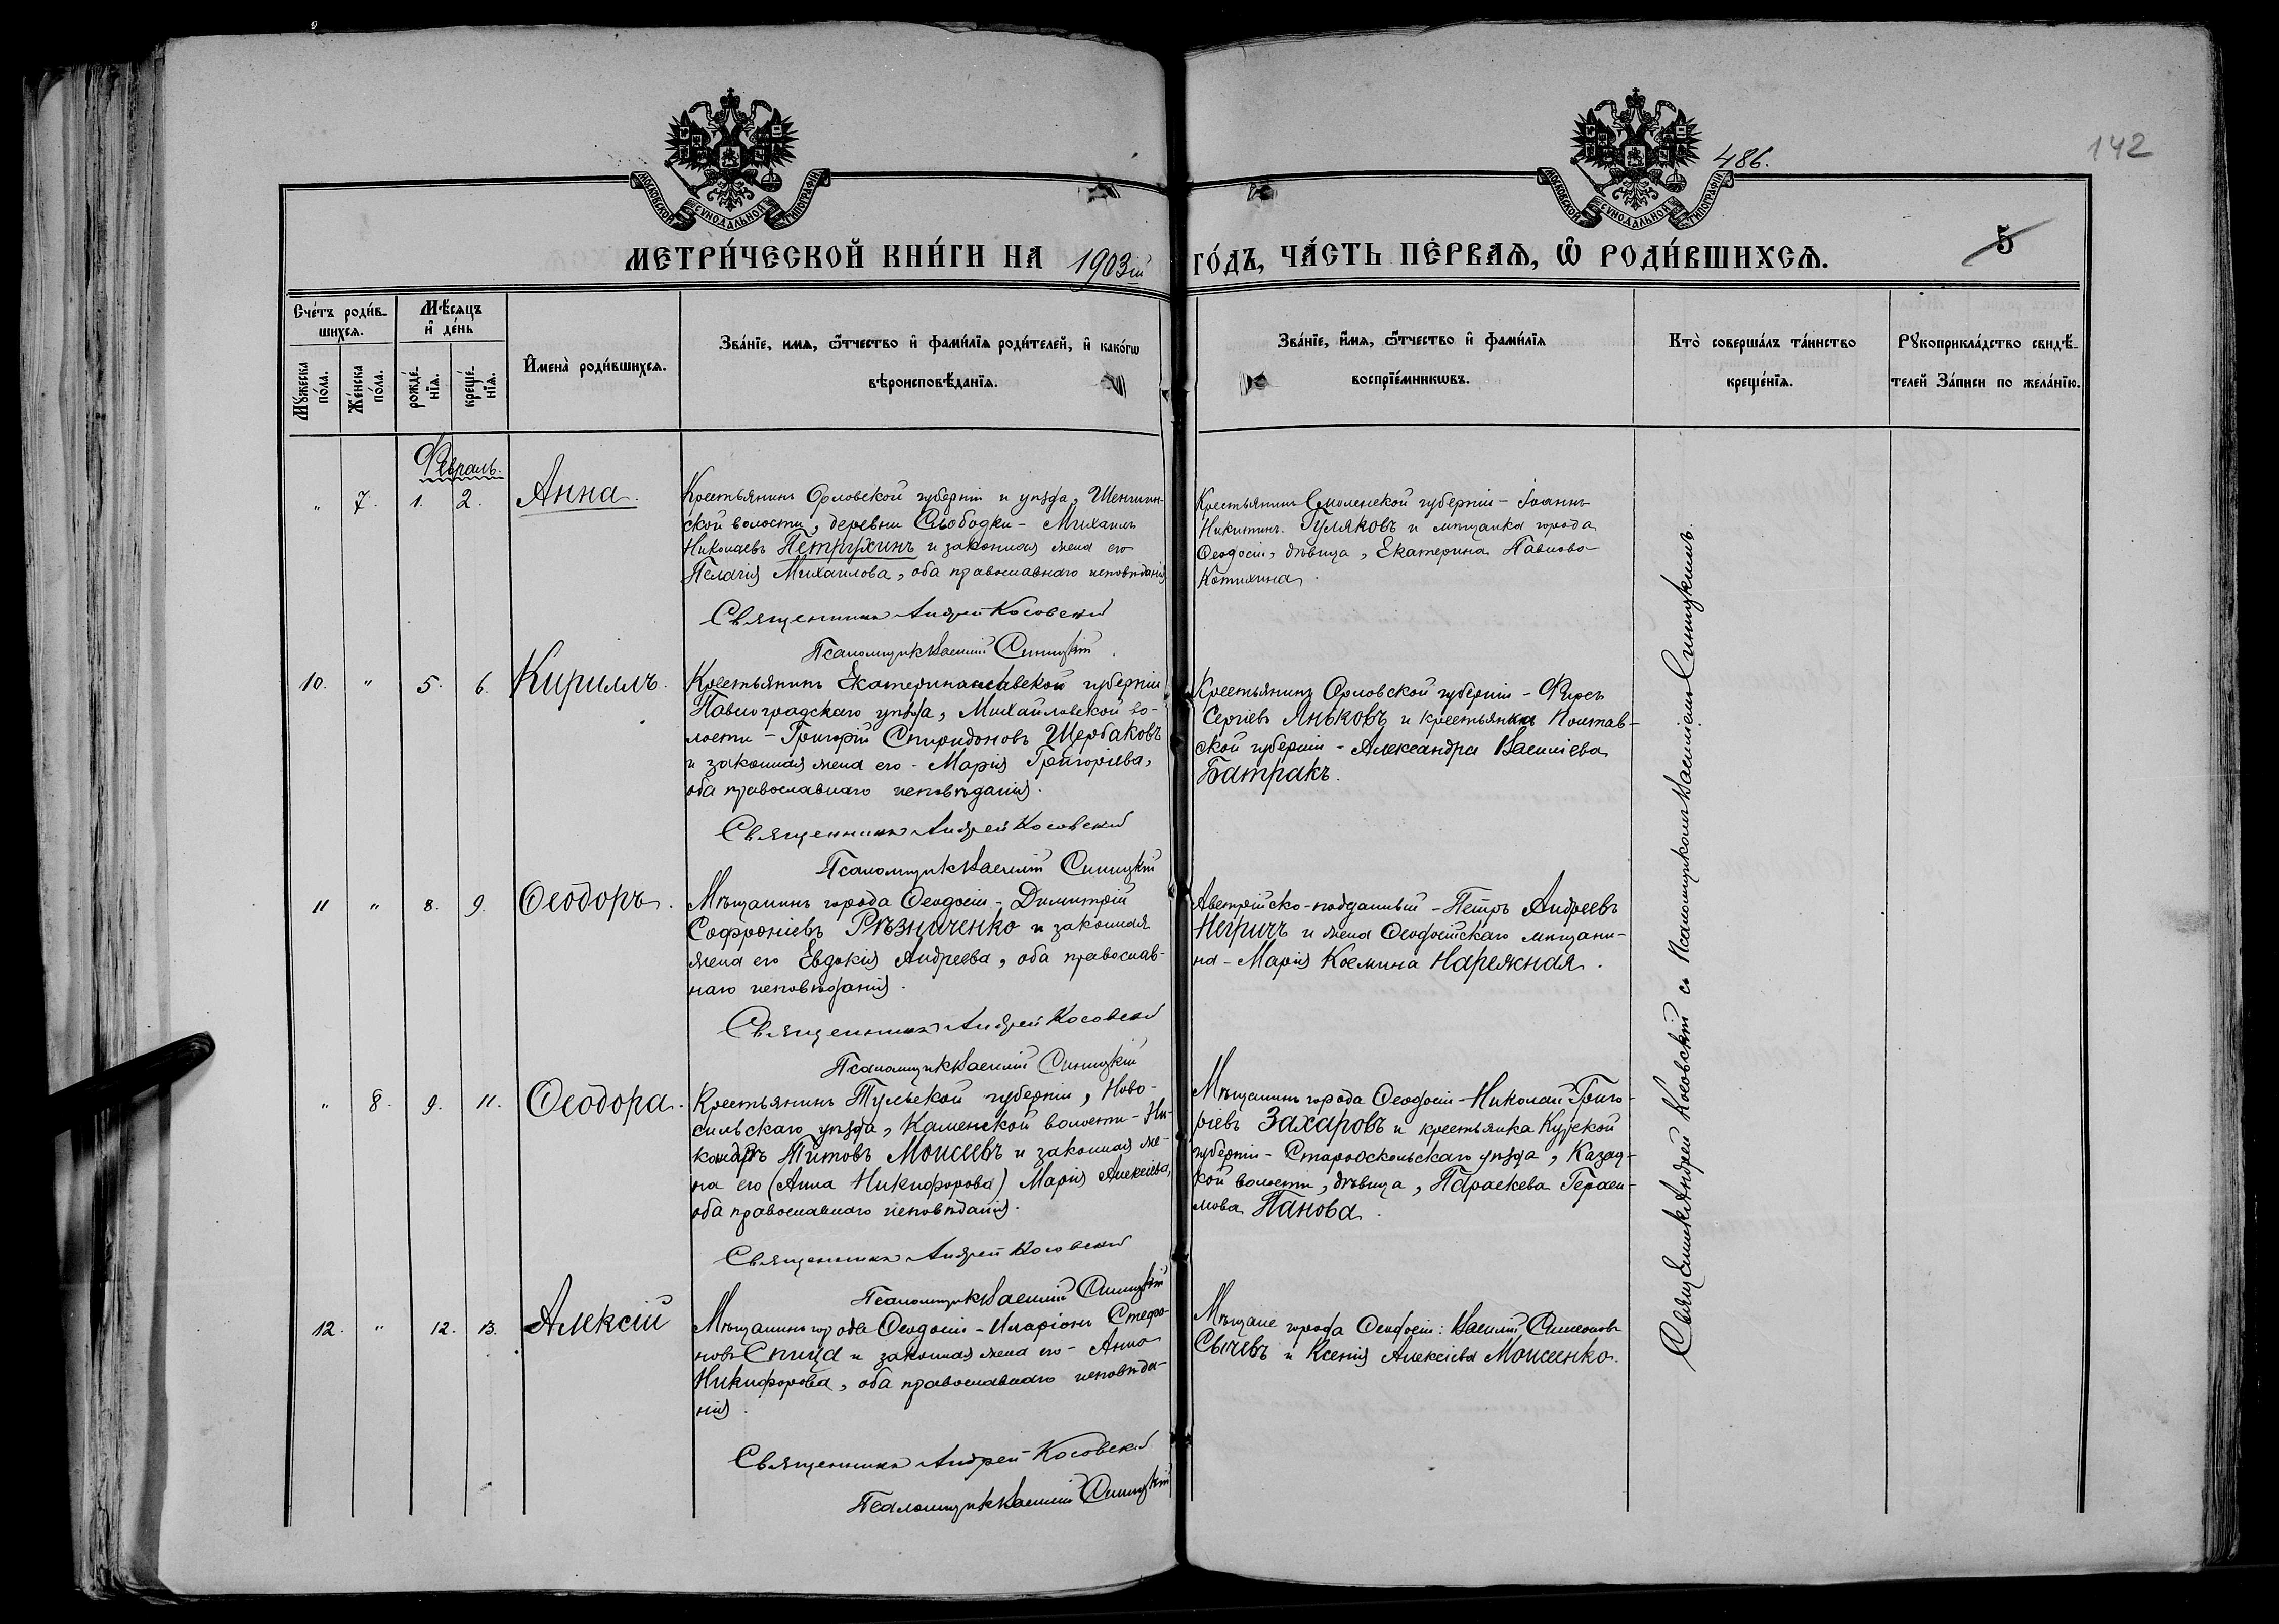 486.
142
МОСКОВСКОЙ СѴНОДАЛЬНОЙ ТИПОГРАФІИ
МОСКОВСКОЙ СѴНОДАЛЬНОЙ ТИПОГРАФІИ
МЕТРИ́ЧЕСКОЙ КНИ́ГИ НА 1903ій ГО́ДЪ, ЧА́СТЬ ПЕ́РВАѦ, Ѡ҆ РОДИ́ВШИХСѦ.
5
Сче́тъ роди́в-
шихсѧ.
Мꙋ́жеска по́ла.
Же́нска по́ла.
Мѣ́сѧцъ
и҆ де́нь
рожде́-
нїѧ.
креще́-
нїѧ.
И҆мена̀ роди́вшихсѧ.
Зва́нїе, имѧ, ѻ҆́тчество и҆ фами́лїѧ роди́телей, и҆ како́гѡ
вѣроисповѣ́данїѧ.
Зва́нїе, и҆́мѧ, ѻ҆́тчество и҆ фами́лїѧ
воспрїе́мникѡвъ.
Кто̀ соверша́лъ та́инство
креще́нїѧ.
Рꙋкоприкла́дство свидѣ́-
телей За́писи по жела́нїю.
Февраль.
" 7. 1. 2. Анна.
Крестьянинъ Орловской губерніи и уѣзда,
ской волости, деревни Слободки - Михаилъ
Николаевъ Петрухинъ и законная жена его
Пелагія Михаилова, оба православнаго исповѣданія
Священникъ Андрей Косовскій
Псаломщикъ Василій Синицкій
Крестьянинъ Смоленской губерніи - Іоаннъ
Никитинъ Гуляковъ и мѣщанка города
Ѳеодосіи, дѣвица, Екатерина Павлова
Котихина.
10. " 5. 6. Кириллъ.
Крестьянинъ Екатеринославской губерніи
Павлоградскаго уѣзда, Михайловской во-
лости - Григорій Спиридоновъ Щербаковъ
и законная жена его - Марія Григоріева,
оба православнаго исповѣданія.
Священникъ Андрей Косовскій
Псаломщикъ Василій Синицкій
Крестьянинъ Орловской губерніи - Фирсъ
Сергіевъ Яньковъ и крестьянка Полтав-
ской губерніи - Александра Василіева
Батракъ.
11 " 8. 9. Ѳеодоръ.
Мѣщанинъ города Ѳеодосіи - Димитрій
Софроніевъ Рѣзниченко и законная
жена его Евдокія Андреева, оба православ-
наго исповѣданія.
Священникъ Андрей Косовскій
Псаломщикъ Василій Синицкій
Австрійско-подданный - Петръ Андреевъ
Негричъ и жена Ѳеодосійскаго мѣщани-
на - Марія Космина Нарежная.
" 8. 9. 11. Ѳеодора.
Крестьянинъ Тульской губерніи, Ново-
сильскаго уѣзда, Каменской волости - Ни-
кандръ Титовъ Моисеевъ и законная же-
на его (Анна Никифорова) Марія Алексіева,
оба православнаго исповѣданія.
Священникъ Андрей Косовскій
Псаломщикъ Василій Синицкій
Мѣщанинъ города Ѳеодосіи - Николай Григо-
ріевъ Захаровъ и крестьянка Курской
губерніи - Старооскольскаго уѣзда, Казац-
кой волости, дѣвица, Параскева Гераси-
мова Панова.
12. " 12. 13. Алексій
Мѣщанинъ города Ѳеодосіи - Иларіонъ Стефа-
новъ Спица и законная жена его - Анна
Никифорова, оба православнаго исповѣда-
нія.
Священникъ Андрей Косовскій
Псаломщикъ Василій Синицкій
Мѣщане города Ѳеодосіи: Василій Симеоновъ
Сычевъ и Ксенія Алексіева Моисеенко.
Священникъ Андрей Косовскій съ Псаломщикомъ Василіемъ Синицкимъ.